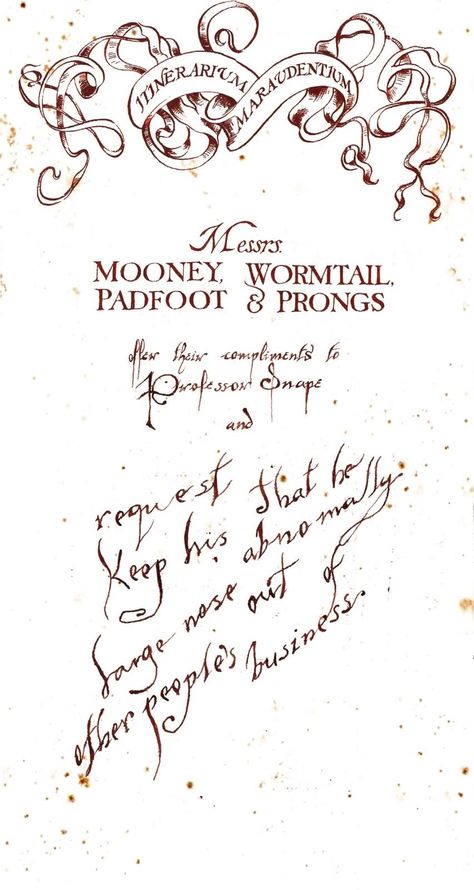 ITINERARIUM
MARAUDENTIUM
Messrs.
MOONEY, WORMTAIL,
PADFOOT & PRONGS
offer their compliments to
Professor Snape
and
request that he
Keep his abnormally
large nose out of
other people's business.